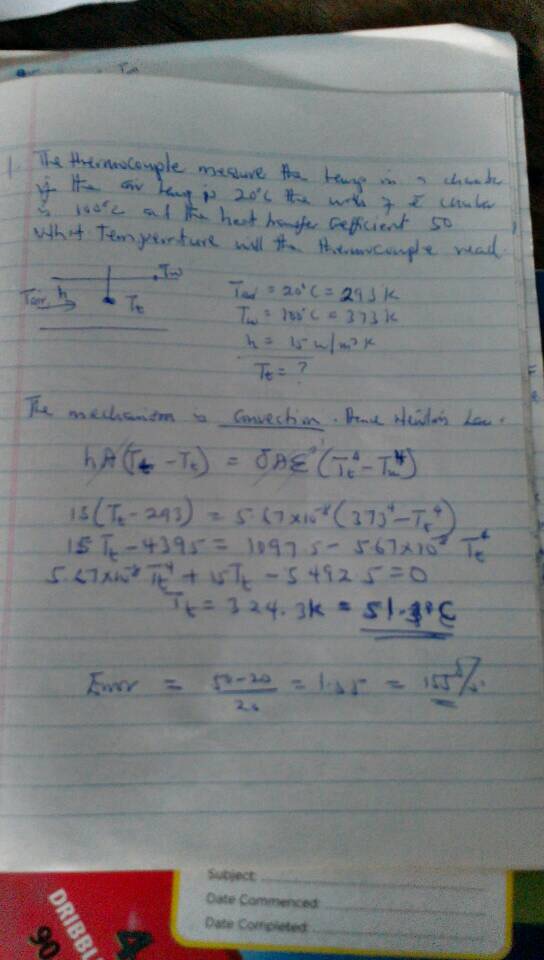 1. The thermocouple measure the temp in a
if the air temp is 20°C the
is 100°C and the heat transfer coefficient 50
What Temperature will the thermocouple read.
Tair h Tw Tt
= 20°C = 293 K
Tw = 100°C = 373 K
h = 15 w/m²K
Tt = ?
The mechanism is Convection. Hence Newton's Law.
15(Tt - 293) = 5.67×10⁻⁸(373⁴ - Tt⁴)
15Tt - 4395 = 1097.5 - 5.67×10⁻⁸ Tt⁴
5.67×10⁻⁸ Tt⁴ + 15Tt - 5492.5 = 0
Tt = 324.3K =
Error = = 1.55 = 155%
Subject:
Date Commenced:
Date Completed:
DRIBBL
90
4